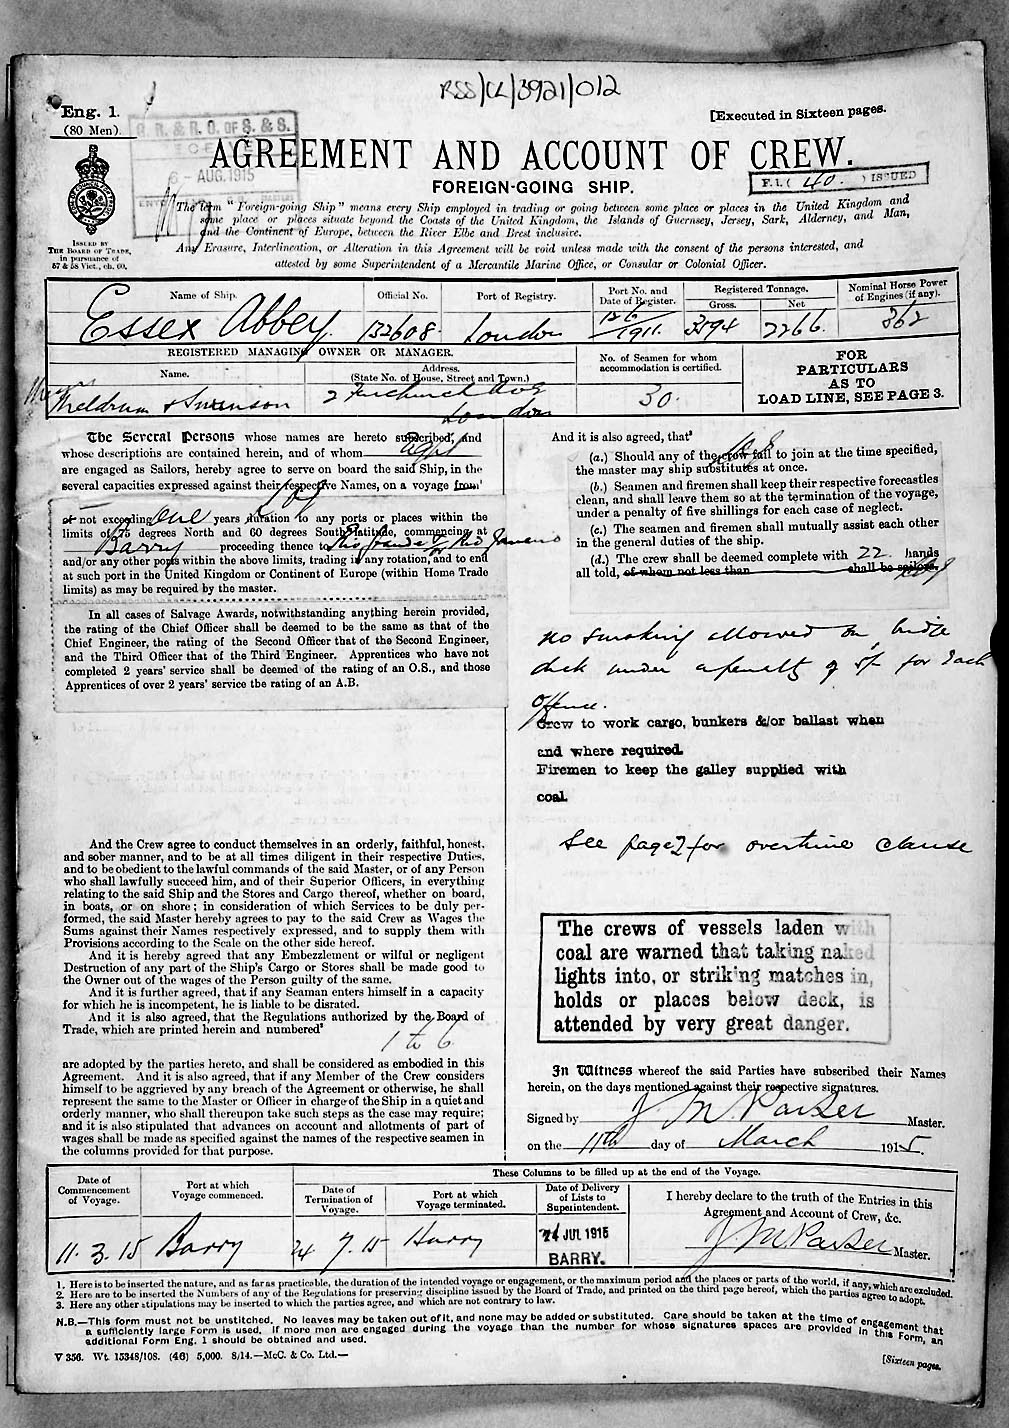 RSS/CL/3921/012
Eng. 1.
(80 Men).
[Executed in Sixteen pages.
R. R. & R. O. OF S. & S.
6 - AUG. 1915
AGREEMENT AND ACCOUNT OF CREW.
FOREIGN-GOING SHIP.
F.1. ( 40. ) ISSUED
The term "Foreign-going Ship" means every Ship employed in trading or going between some place or places in the United Kingdom and
some place or places situate beyond the Coasts of the United Kingdom, the Islands of Guernsey, Jersey, Sark, Alderney, and Man,
and the Continent of Europe, between the River Elbe and Brest inclusive.
Any Erasure, Interlineation, or Alteration in this Agreement will be void unless made with the consent of the persons interested, and
attested by some Superintendent of a Mercantile Marine Office, or Consular or Colonial Officer.
ISSUED BY
THE BOARD OF TRADE,
in pursuance of
57 & 58 Vict., ch. 60.
Name of Ship. Official No. Port of Registry. Port No. and Date of Register. Registered Tonnage. Gross. Net Nominal Horse Power of Engines (if any).
Essex Abbey. 132608. London 126/1911. 3594 2266. 362
REGISTERED MANAGING OWNER OR MANAGER.
Name. Address. (State No. of House, Street and Town.)
No. of Seamen for whom accommodation is certified.
Meldrum & Swinson 2 Fenchurch Ave London
30.
FOR
PARTICULARS
AS TO
LOAD LINE, SEE PAGE 3.
The Several Persons whose names are hereto subscribed, and
whose descriptions are contained herein, and of whom eight
are engaged as Sailors, hereby agree to serve on board the said Ship, in the
several capacities expressed against their respective Names, on a voyage from¹
or not exceeding one years duration to any ports or places within the
limits of 75 degrees North and 60 degrees South latitude, commencing at
Barry proceeding thence to Rio Grande or Rio Janeiro
and/or any other ports within the above limits, trading in any rotation, and to end
at such port in the United Kingdom or Continent of Europe (within Home Trade
limits) as may be required by the master.
In all cases of Salvage Awards, notwithstanding anything herein provided,
the rating of the Chief Officer shall be deemed to be the same as that of the
Chief Engineer, the rating of the Second Officer that of the Second Engineer,
and the Third Officer that of the Third Engineer. Apprentices who have not
completed 2 years' service shall be deemed of the rating of an O.S., and those
Apprentices of over 2 years' service the rating of an A.B.
And the Crew agree to conduct themselves in an orderly, faithful, honest,
and sober manner, and to be at all times diligent in their respective Duties,
and to be obedient to the lawful commands of the said Master, or of any Person
who shall lawfully succeed him, and of their Superior Officers, in everything
relating to the said Ship and the Stores and Cargo thereof, whether on board,
in boats, or on shore; in consideration of which Services to be duly per-
formed, the said Master hereby agrees to pay to the said Crew as Wages the
Sums against their Names respectively expressed, and to supply them with
Provisions according to the Scale on the other side hereof.
And it is hereby agreed that any Embezzlement or wilful or negligent
Destruction of any part of the Ship's Cargo or Stores shall be made good to
the Owner out of the wages of the Person guilty of the same.
And it is further agreed, that if any Seaman enters himself in a capacity
for which he is incompetent, he is liable to be disrated.
And it is also agreed, that the Regulations authorized by the Board of
Trade, which are printed herein and numbered²
1 to 6
are adopted by the parties hereto, and shall be considered as embodied in this
Agreement. And it is also agreed, that if any Member of the Crew considers
himself to be aggrieved by any breach of the Agreement or otherwise, he shall
represent the same to the Master or Officer in charge of the Ship in a quiet and
orderly manner, who shall thereupon take such steps as the case may require;
and it is also stipulated that advances on account and allotments of part of
wages shall be made as specified against the names of the respective seamen in
the columns provided for that purpose.
And it is also agreed, that³
(a.) Should any of the crew fail to join at the time specified,
the master may ship substitutes at once.
(b.) Seamen and firemen shall keep their respective forecastles
clean, and shall leave them so at the termination of the voyage,
under a penalty of five shillings for each case of neglect.
(c.) The seamen and firemen shall mutually assist each other
in the general duties of the ship.
(d.) The crew shall be deemed complete with 22 hands
all told, of whom not less than shall be sailors.
no smoking allowed on bridge
deck under a penalty of 5/- for each
offence.
Crew to work cargo, bunkers &/or ballast when
and where required.
Firemen to keep the galley supplied with
coal.
See page 2 for overtime clause
The crews of vessels laden with
coal are warned that taking naked
lights into, or striking matches in,
holds or places below deck, is
attended by very great danger.
In Witness whereof the said Parties have subscribed their Names
herein, on the days mentioned against their respective signatures.
Signed by J. M. Parser Master.
on the 11th day of March 1915.
These Columns to be filled up at the end of the Voyage.
Date of Commencement of Voyage. Port at which Voyage commenced. Date of Termination of Voyage. Port at which Voyage terminated. Date of Delivery of Lists to Superintendent.
I hereby declare to the truth of the Entries in this
Agreement and Account of Crew, &c.
11. 3. 15 Barry 24 7. 15 Barry 24 JUL 1915 BARRY.
J. M. Parser Master.
1. Here is to be inserted the nature, and as far as practicable, the duration of the intended voyage or engagement, or the maximum period and the places or parts of the world, if any, which are excluded.
2. Here are to be inserted the Numbers of any of the Regulations for preserving discipline issued by the Board of Trade, and printed on the third page hereof, which the parties agree to adopt.
3. Here any other stipulations may be inserted to which the parties agree, and which are not contrary to law.
N.B.—This form must not be unstitched. No leaves may be taken out of it, and none may be added or substituted. Care should be taken at the time of engagement that
a sufficiently large Form is used. If more men are engaged during the voyage than the number for whose signatures spaces are provided in this Form, an
additional Form Eng. 1 should be obtained and used.
V 356. Wt. 15348/108. (46) 5,000. 8/14.—McC. & Co. Ltd.—
[Sixteen pages.